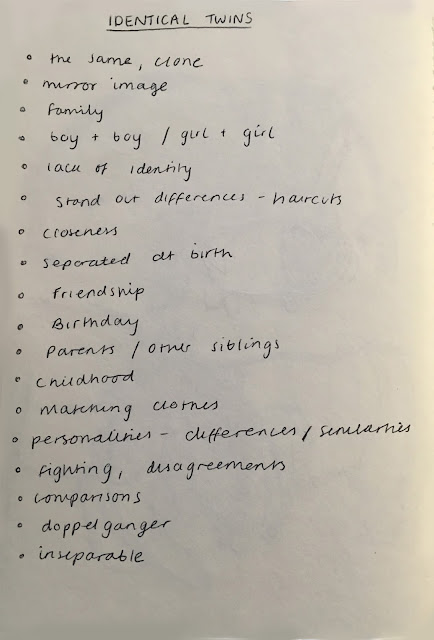 IDENTICAL TWINS
• the same, clone
• mirror image
• family
• boy + boy / girl + girl
• lack of identity
• stand out differences - haircuts
• closeness
• separated at birth
• friendship
• Birthday
• Parents / other siblings
• childhood
• matching clothes
• personalities - differences / similarities
• fighting, disagreements
• comparisons
• doppelganger
• inseparable